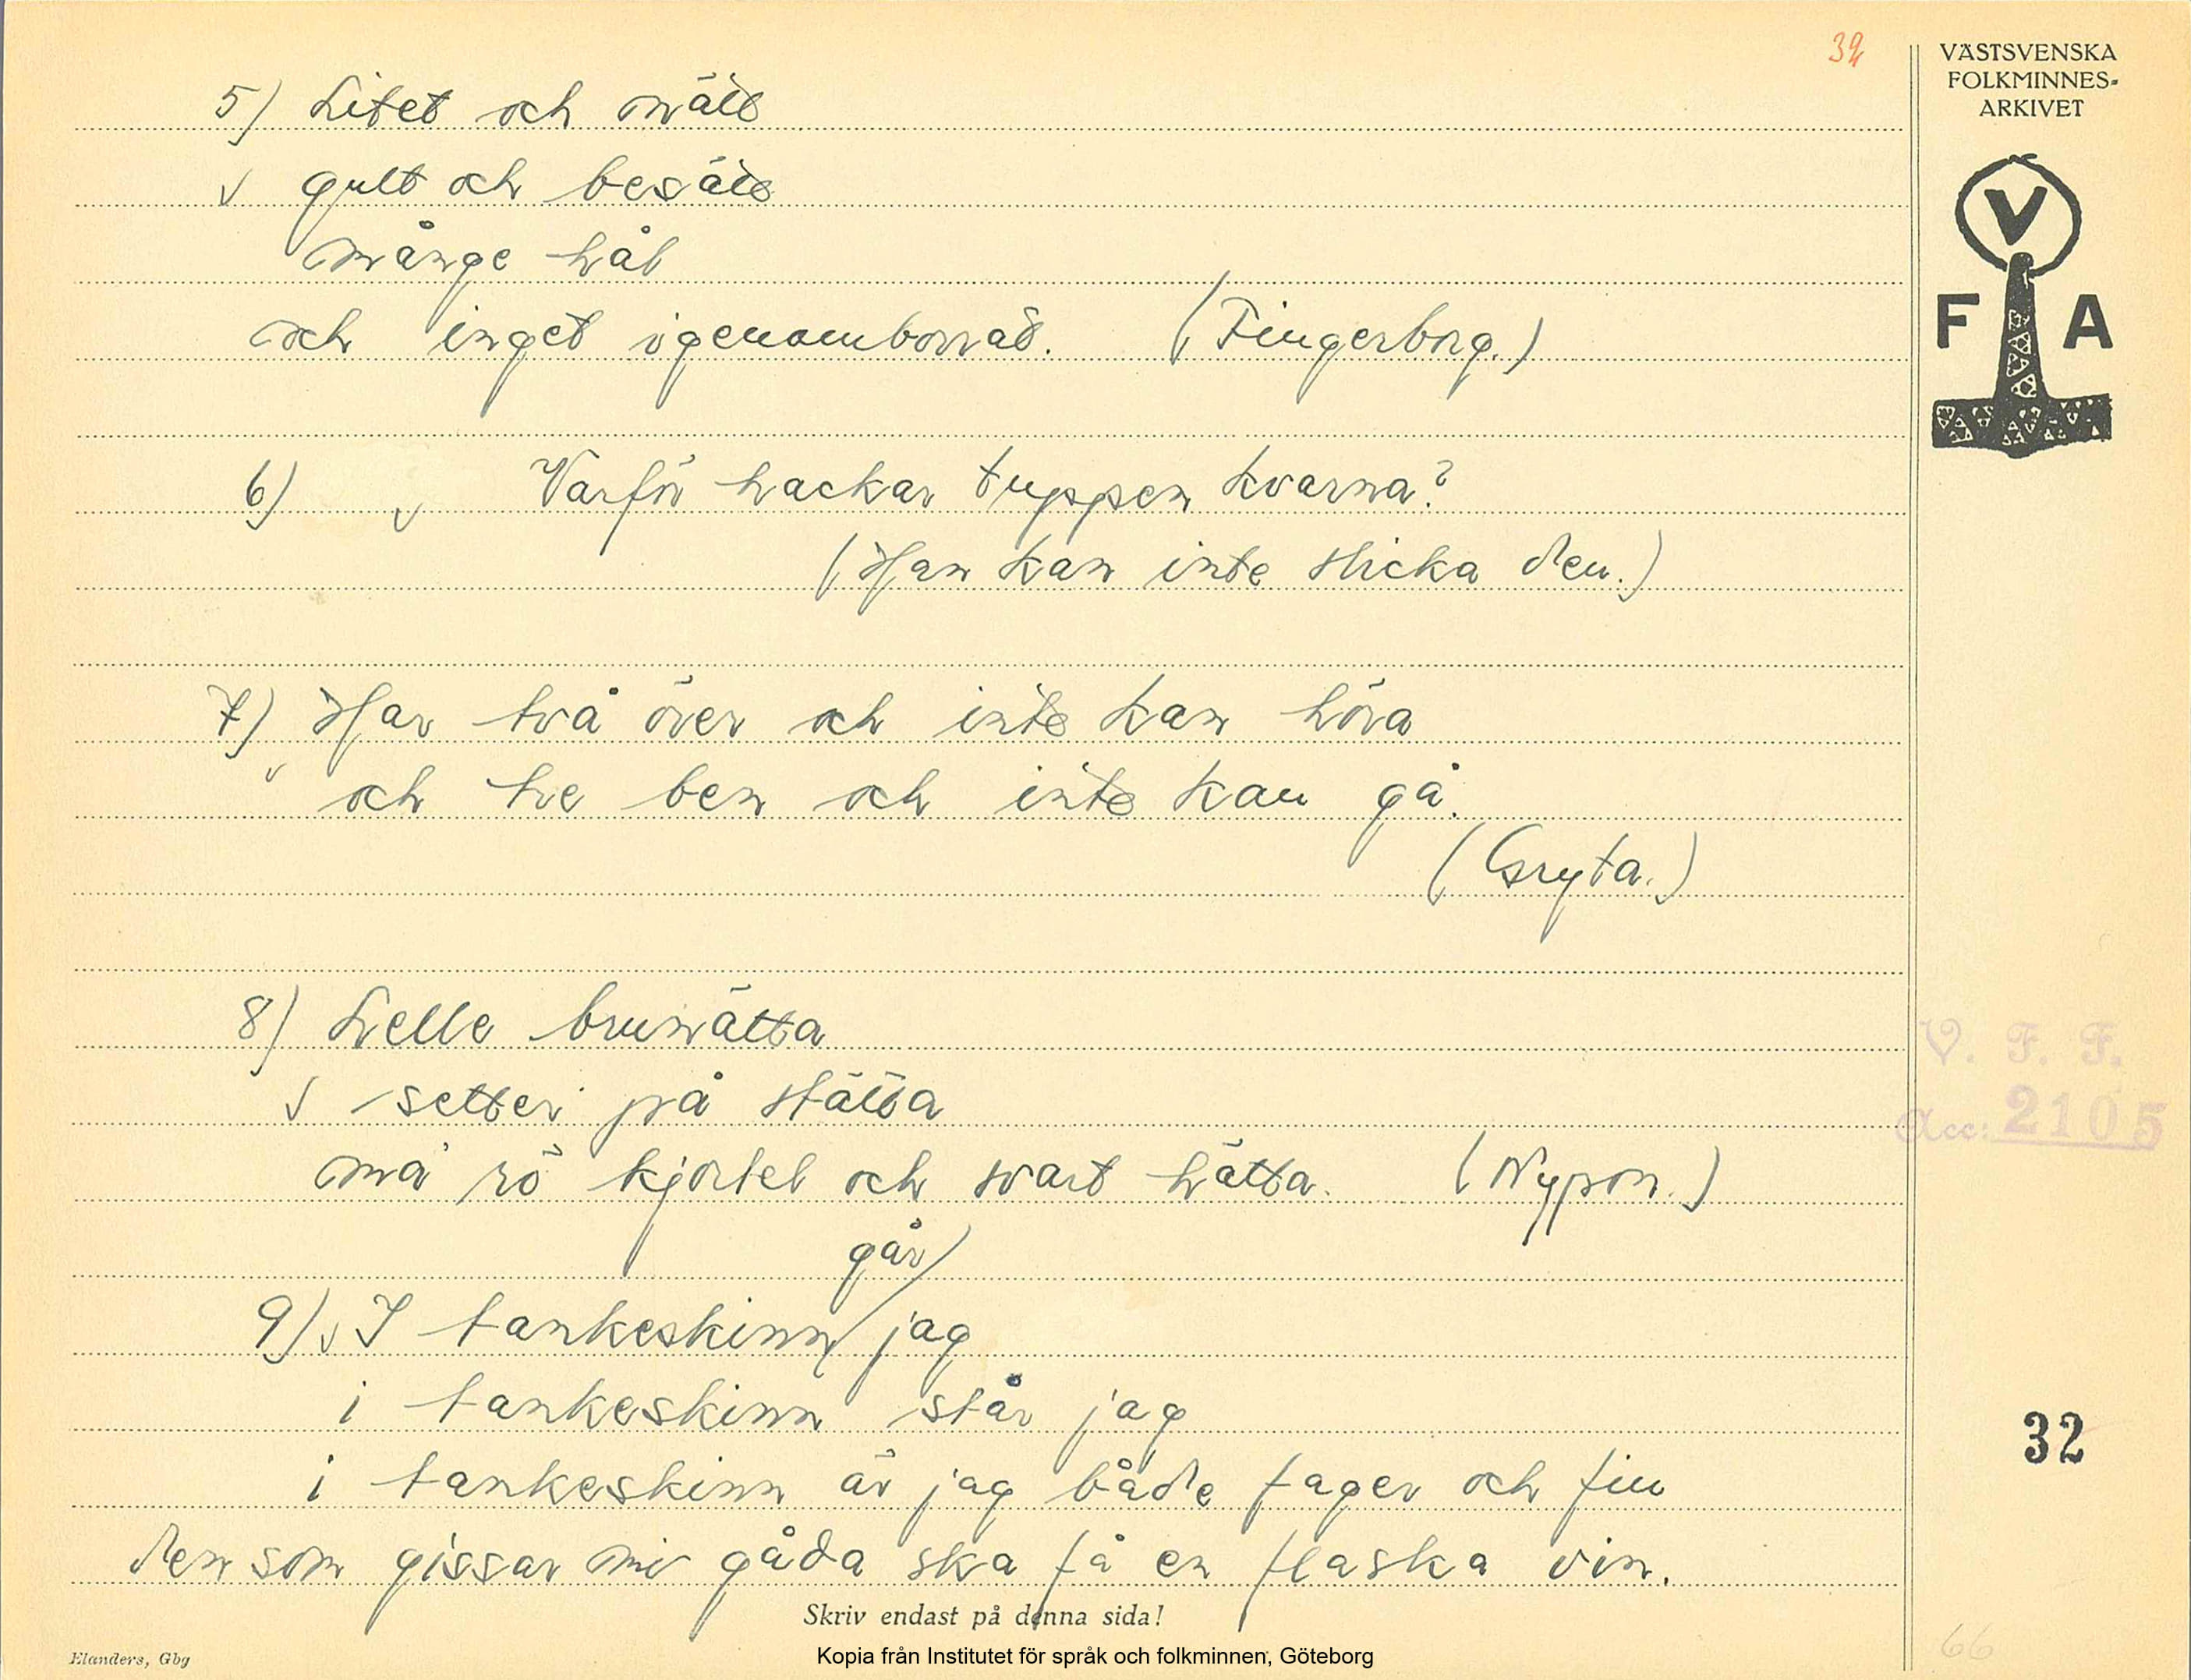 32
VÄSTSVENSKA
FOLKMINNES-
ARKIVET
V
F A
5) Litet och nätt
v gult och besatt
många hål
och inget igenomborrat. (Fingerborg.)
6) v Varför hackar tuppen kvarna?
(Han kan inte slicka den.)
7) Har två örer och inte kan höra
v och tre ben och inte kan gå.
(Gryta.)
8) Lelle brunätta
v setter på stätta
må rö kjortel och svart hätta. (Nypon.)
går
9) v I tankeskinn jag
i tankeskinn står jag
i tankeskinn är jag både fager och fin
den som gissar mi gåda ska få en flaska vin.
V. F. F.
Acc: 2105
32
66
Skriv endast på denna sida!
Kopia från Institutet för språk och folkminnen, Göteborg
Elanders, Gbg